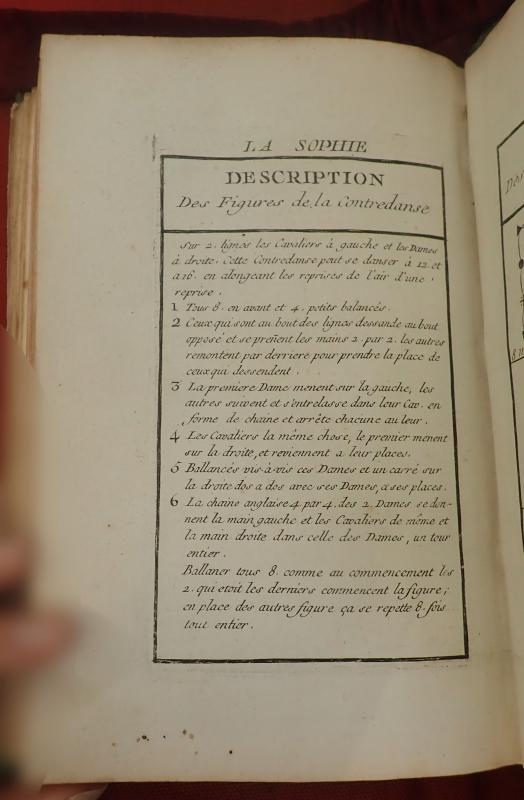 LA SOPHIE
DESCRIPTION
Des Figures de la Contredanse
Sur 2. lignes les Cavaliers à gauche et les Dames
à droite. Cette Contredanse peut se danser à 12. et
a 16. en alongeant les reprises de l'air d'une
reprise.
1 Tous 8. en avant et 4. petits balancés.
2 Ceux qui sont au bout des lignes dessande au bout
opposé et se preñent les mains 2. par 2. les autres
remontent par derriere pour prendre la place de
ceux qui dessendent.
3 La premiere Dame menent sur la gauche, les
autres suivent et s'entrelasse dans leur Cav. en
forme de chaine et arrête chacune au leur.
4 Les Cavaliers la même chose, le premier menent
sur la droite, et reviennent a leur places.
5 Ballancés vis-à-vis ces Dames et un carré sur
la droite dos a dos avec ses Dames, a ses places.
6 La chaine anglaise 4. par 4. des 2. Dames se don-
nent la main gauche et les Cavaliers de même et
la main droite dans celle des Dames, un tour
entier.
Ballaner tous 8. comme au commencement les
2. qui etoit les derniers commencent la figure;
en place des autres figure ça se repette 8. fois
tout entier.